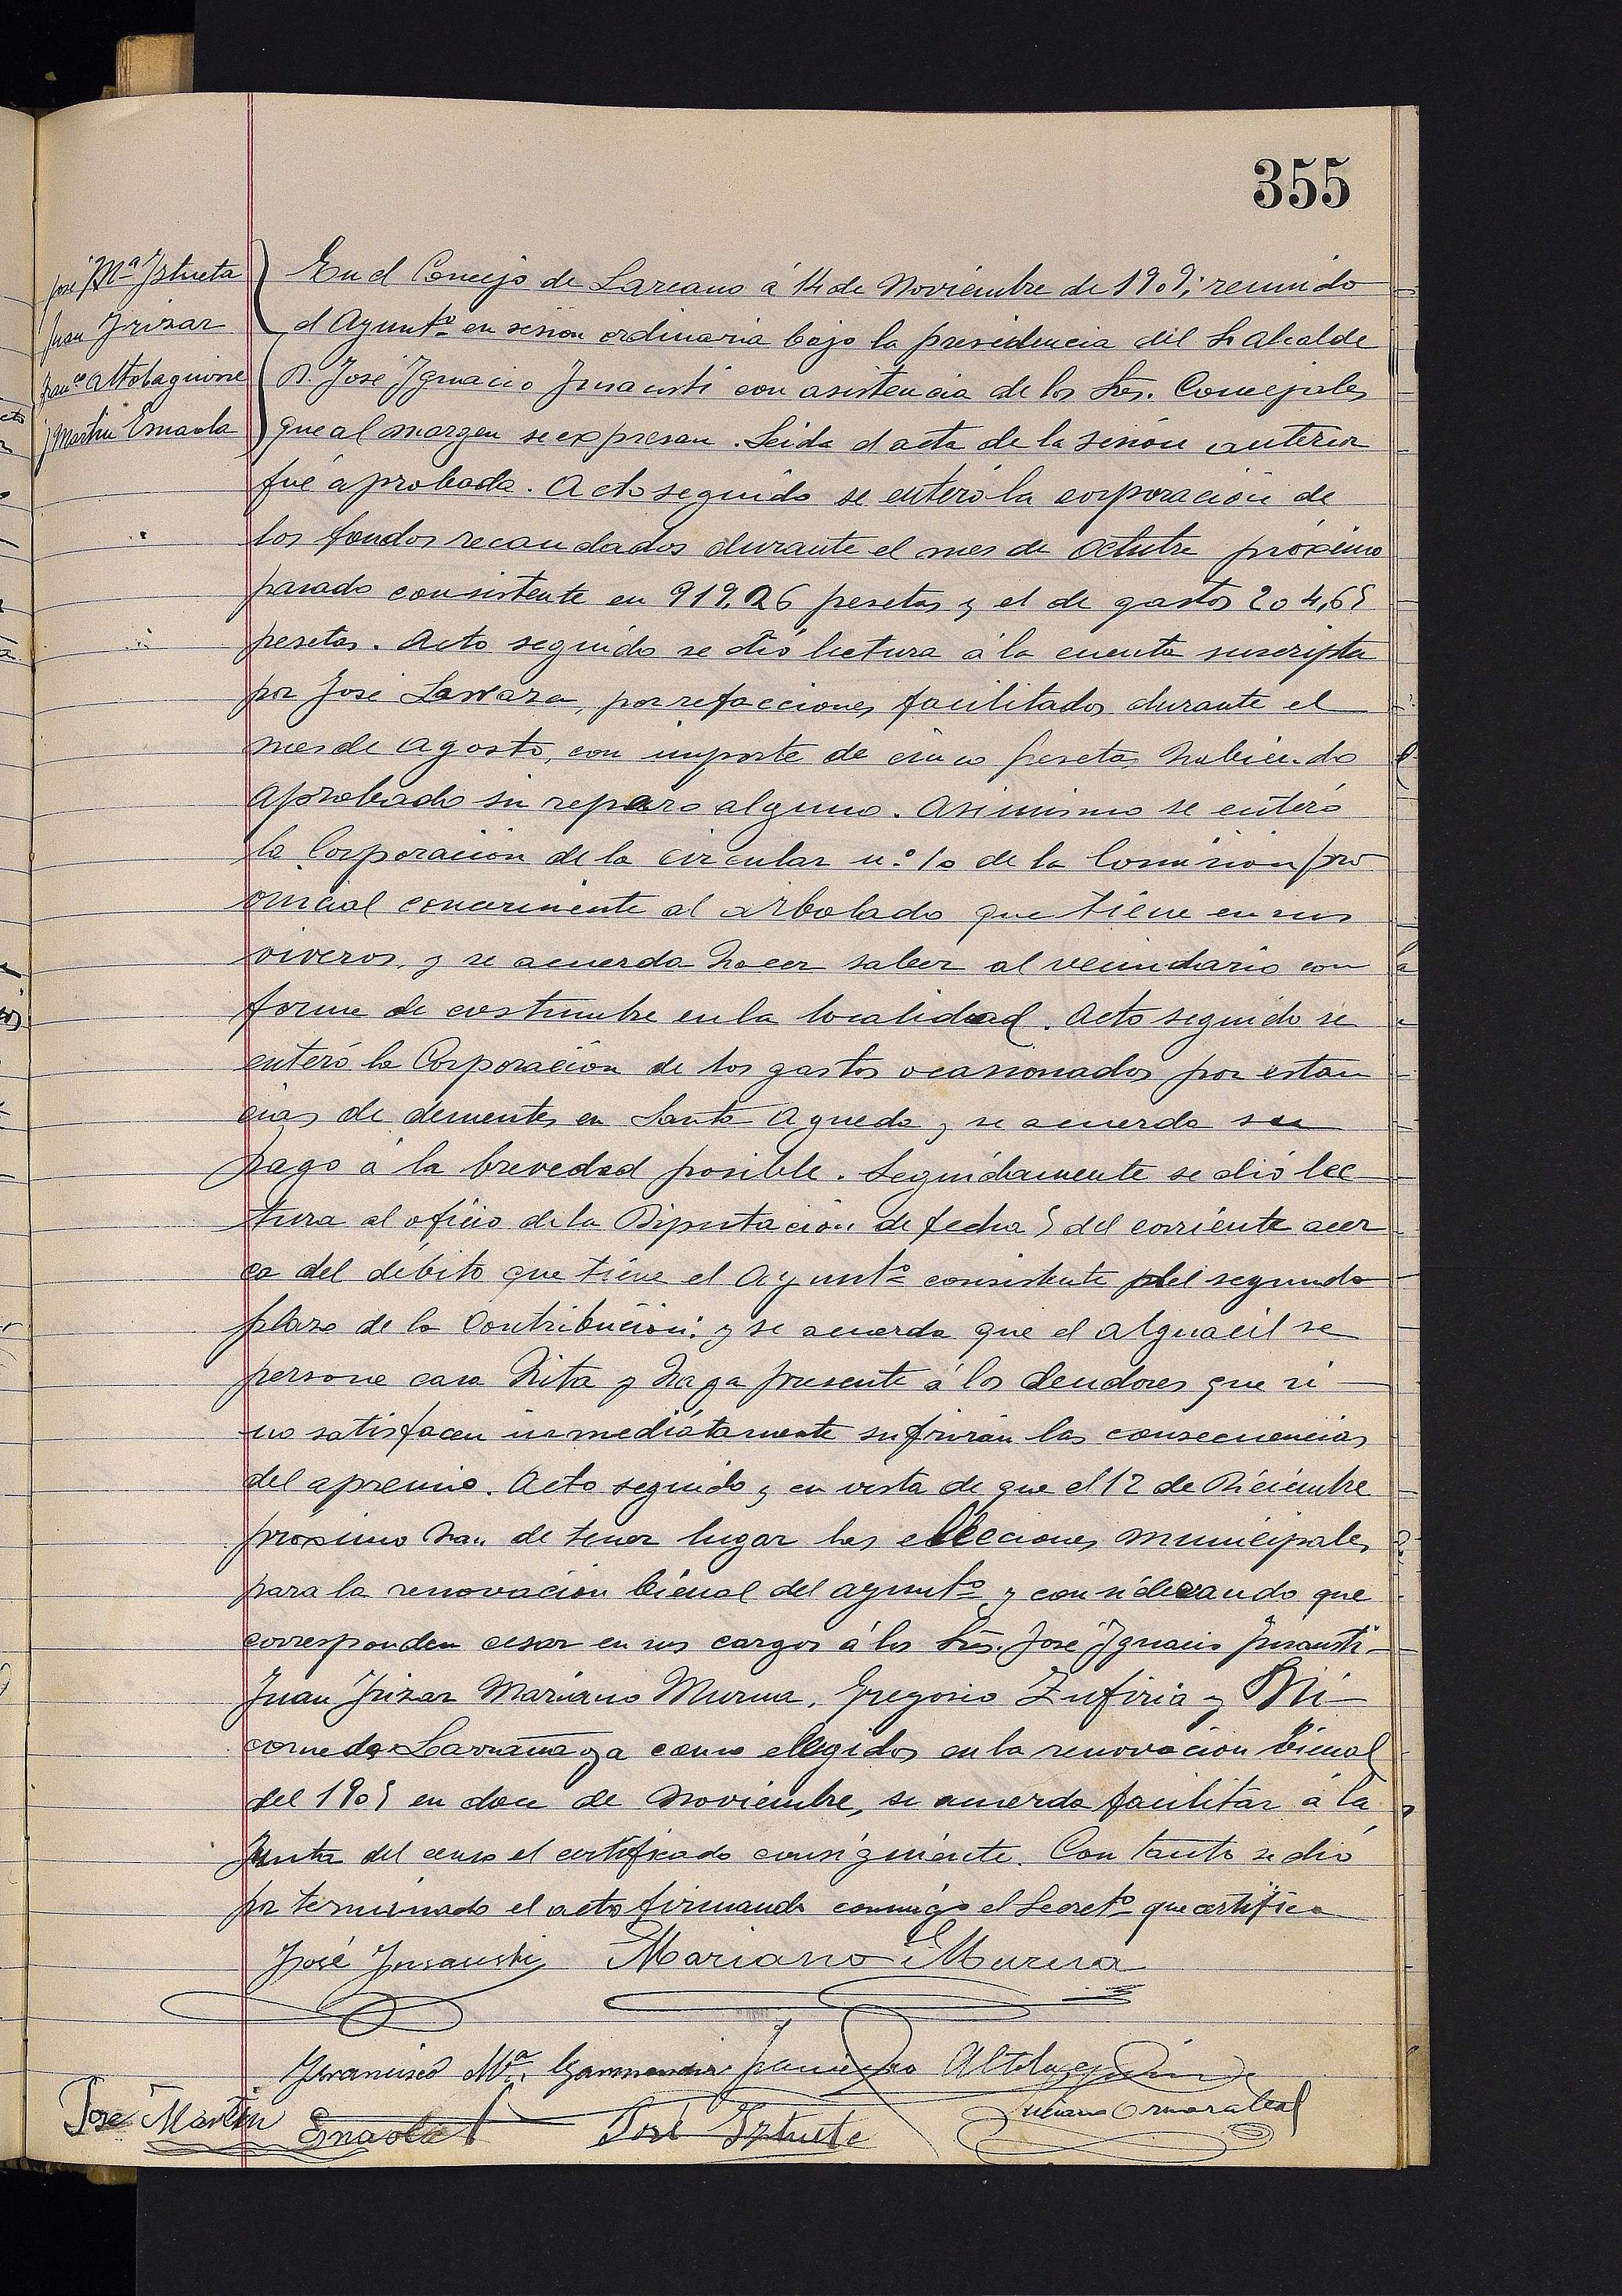 355
José Mª Iztueta
Juan Irizar
Franco Altolaguirre
Martin Esnaola
En el Concejo de Larcano á 14 de Noviembre de 1909; reunido
el Ayuntº en sesion ordinaria bajo la presidencia del Sr Alcalde
D. José Ygnacio Insausti con asistencia de los Sres. Concejales
que al margen se expresan. Leida el acta de la sesión anterior
fué aprobada. Acto seguido se enteró la corporación de
los fondos recaudados durante el mes de Octubre próximo
pasado consistente en 919,26 pesetas y el de gastos 204,65
pesetas. Acto seguido se dió lectura á la cuenta suscripta
por José por refacciones facilitados durante el
mes de Agosto, con importe de cinco pesetas habiendo
aprobado sin reparo alguno. Asimismo se enteró
la Corporación de la circular n.º 10 de la Comision pro
vincial concerniente al arbolado que tiene en sus
viveros, y se acuerda hacer saber al vecindario con
forme de costumbre en la localidad. Acto seguido se
enteró la Corporación de los gastos ocasionados por estan
cias de dementes en Santa Agueda y se acuerda su
pago á la brevedad posible. Seguidamente se dió lec
tura al oficio de la Diputación de fecha 5 del corriente acer
ca del débito que tiene el Ayuntº consistente del segundo
plazo de la Contribución: y se acuerda que el alguacil se
persone casa hita y haga presente á los deudores que si
no satisfacen inmediatamente sufrirán las consecuencias
del apremio. Acto seguido y en vista de que el 12 de Diciembre
proximo han de tener lugar las elecciones municipales
para la renovación bienal del ayuntº y considerando que
corresponden cesar en sus cargos á los Sres. José Ygnacio Insausti
Juan Irizar Mariano Murua, Gregorio Zufiria y Ni
comedes Larrañaga como elegidos en la renovacion bienal
del 1905 en doce de Noviembre, se acuerda facilitar á la
Junta del censo el certificado consiguiente. Con tanto se dió
por terminado el acto firmando conmigo el Secretº que certifico
José Insausti Mariano Murua
Francisco Mª Garmendia Francisco Altolaguirre
José Martin Esnaola José Iztueta